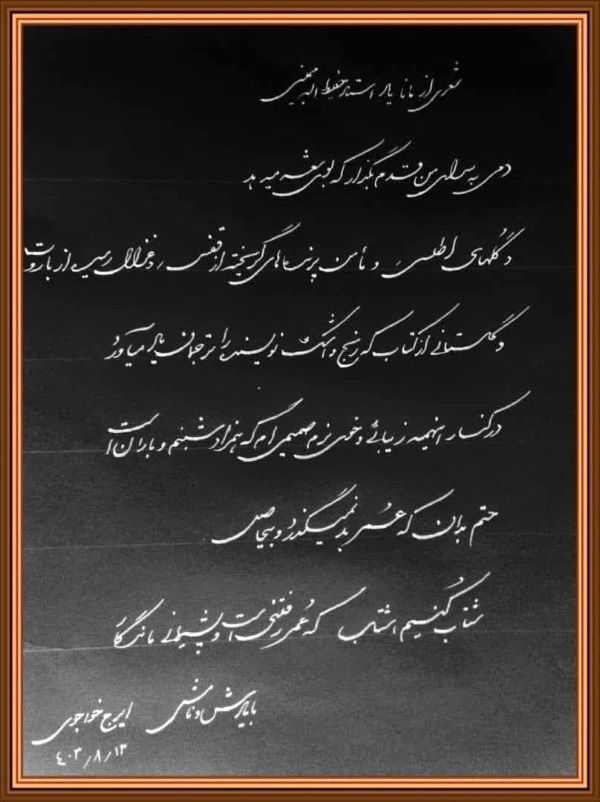 شعری از مانا یاد استاد حفیظ اله ممبینی
دمی به سرای من قدم بگذار که بوی بنفشه میدهد
و گلهای اطلسی و مأمن پرنده‌های گریخته از قفس و غزالان رمیده از باروت
و گلستانی از کتاب که رنج و اشک نویسنده را ترجمان یاد میآورد
در کنار اینهمه زیبائی و خوی نرم صمیمی ام که همزاد شبنم و باران است
حتم بدان که عمر بد نمیگذرد و بیحاصل
شتاب کنیم اشتاب که عمر رفتنی است و پشیمانی ماندگار
با پوزش ایرج خواجوی
۴۰۳/۸/۱۳